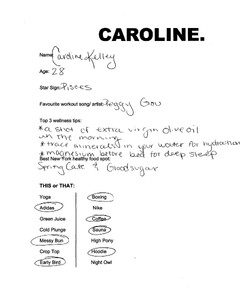 CAROLINE.
Name: Caroline Kelley
Age: 28
Star Sign: Pisces
Favourite workout song/ artist: Peggy Gou
Top 3 wellness tips:
*a shot of extra virgin olive oil
in the morning
*trace minerals in your water for hydration
*magnesium before bed for deep sleep
Best New York healthy food spot:
Spring Cafe & Goodsugar
THIS or THAT:
Yoga Boxing
Adidas Nike
Green Juice Coffee
Cold Plunge Sauna
Messy Bun High Pony
Crop Top Hoodie
Early Bird Night Owl